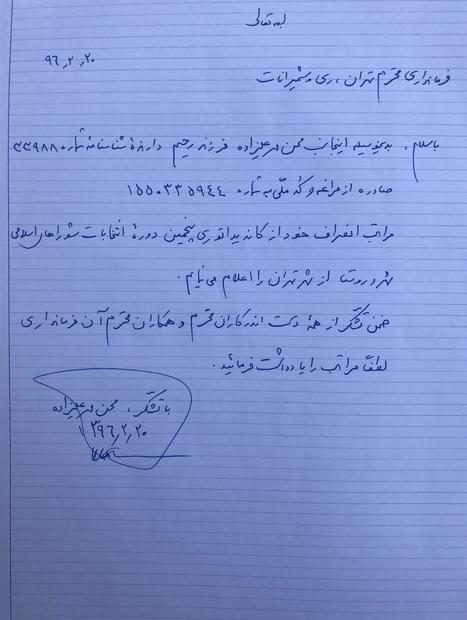 بسمه تعالی
۹۶٫۲٫۲۰
فرمانداری محترم تهران، ری و شمیرانات
با سلام، بدینوسیله اینجانب محسن مهرعلیزاده فرزند رحیم دارندهٔ شناسنامه شماره ۳۳۹۸۸
صادره از مراغه و کد ملّی به شماره ۱۵۵۰۳۳۵۹۴۴
مراتب انصراف خود از کاندیداتوری پنجمین دورهٔ انتخابات شوراهای اسلامی
شهر و روستا از شهر تهران را اعلام می‌نمایم.
ضمن تشکّر از همهٔ دست اندرکاران محترم و همکاران محترم آن فرمانداری
لطفاً مراتب را یادداشت فرمائید.
با تشکّر، محسن مهرعلیزاده
۱۳۹۶٫۲٫۲۰